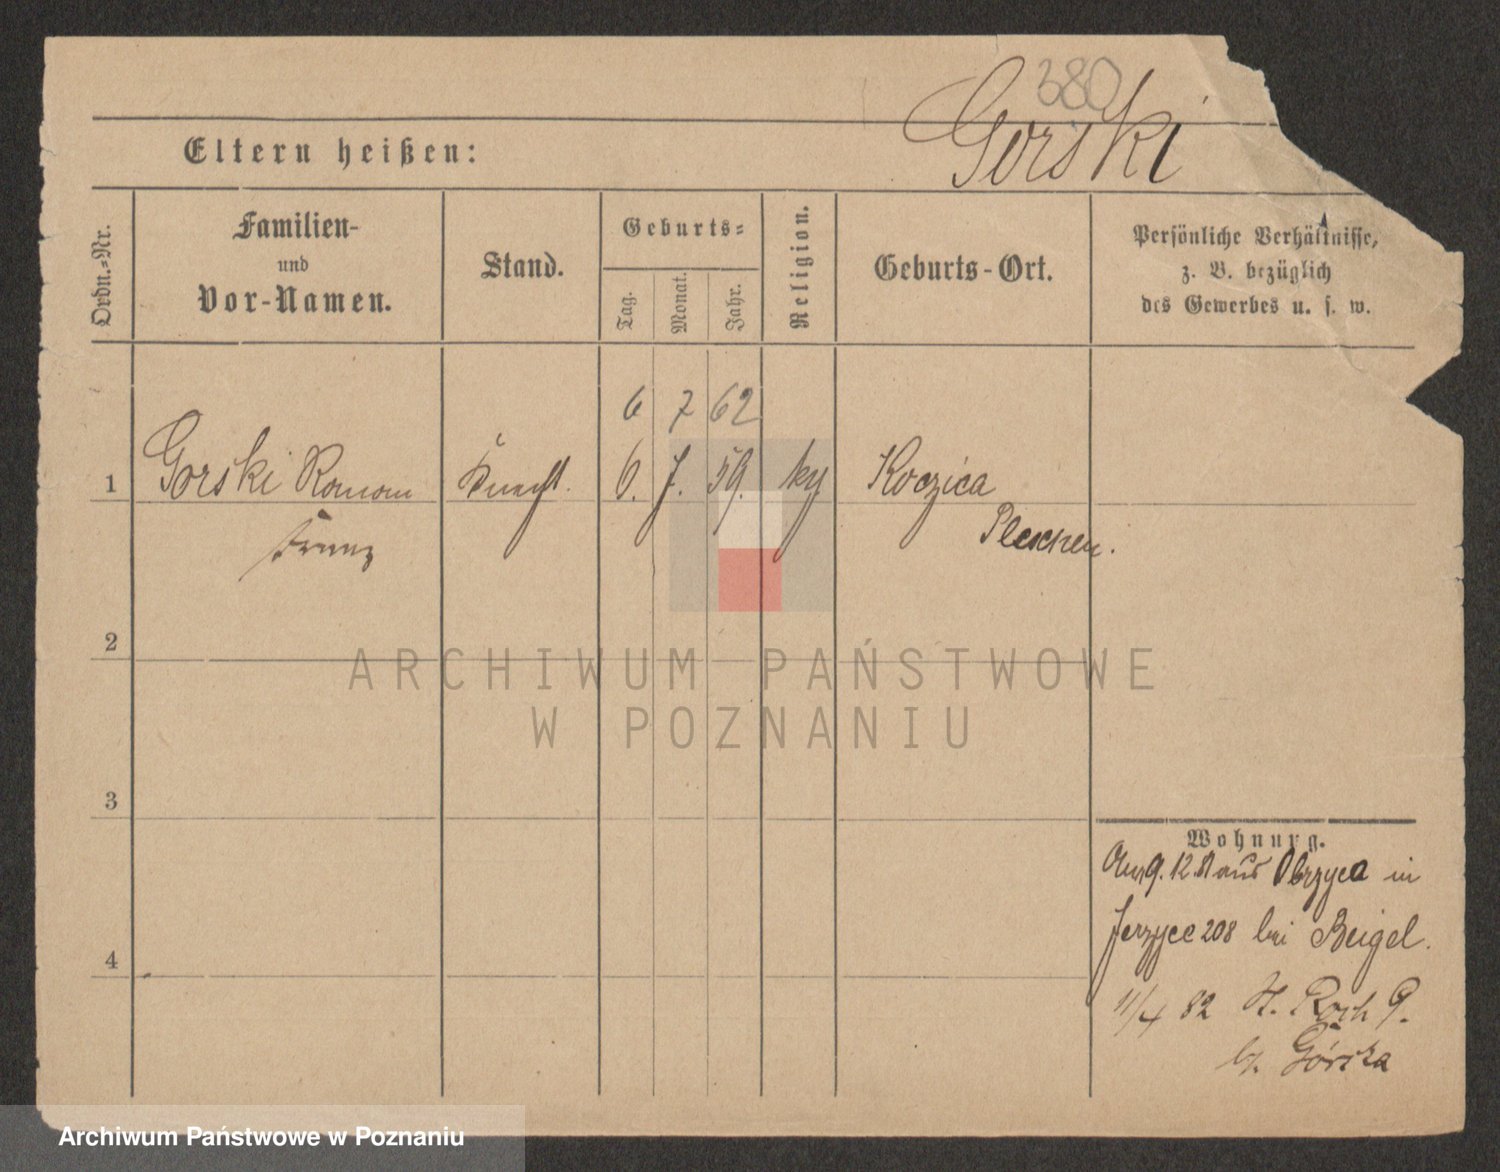 380
Gorski
Eltern heißen:
Ordn.=Nr.
Familien-
und
Vor-Namen.
Stand.
Geburts=
Tag.
Monat.
Jahr.
Religion.
Geburts-Ort.
Persönliche Verhältnisse,
z. B. bezüglich
des Gewerbes u. s. w.
6 7 62
1 Gorski Roman Knecht. 6. 7. 59. Koczica
Franz Pleschen.
2
ARCHIWUM PAŃSTWOWE
W POZNANIU
3
Wohnung.
aus Obrzyca in
Jerzyce 208 bei Beigel.
4
11/4 82 St. Roch 9.
b. Górska
Archiwum Państwowe w Poznaniu